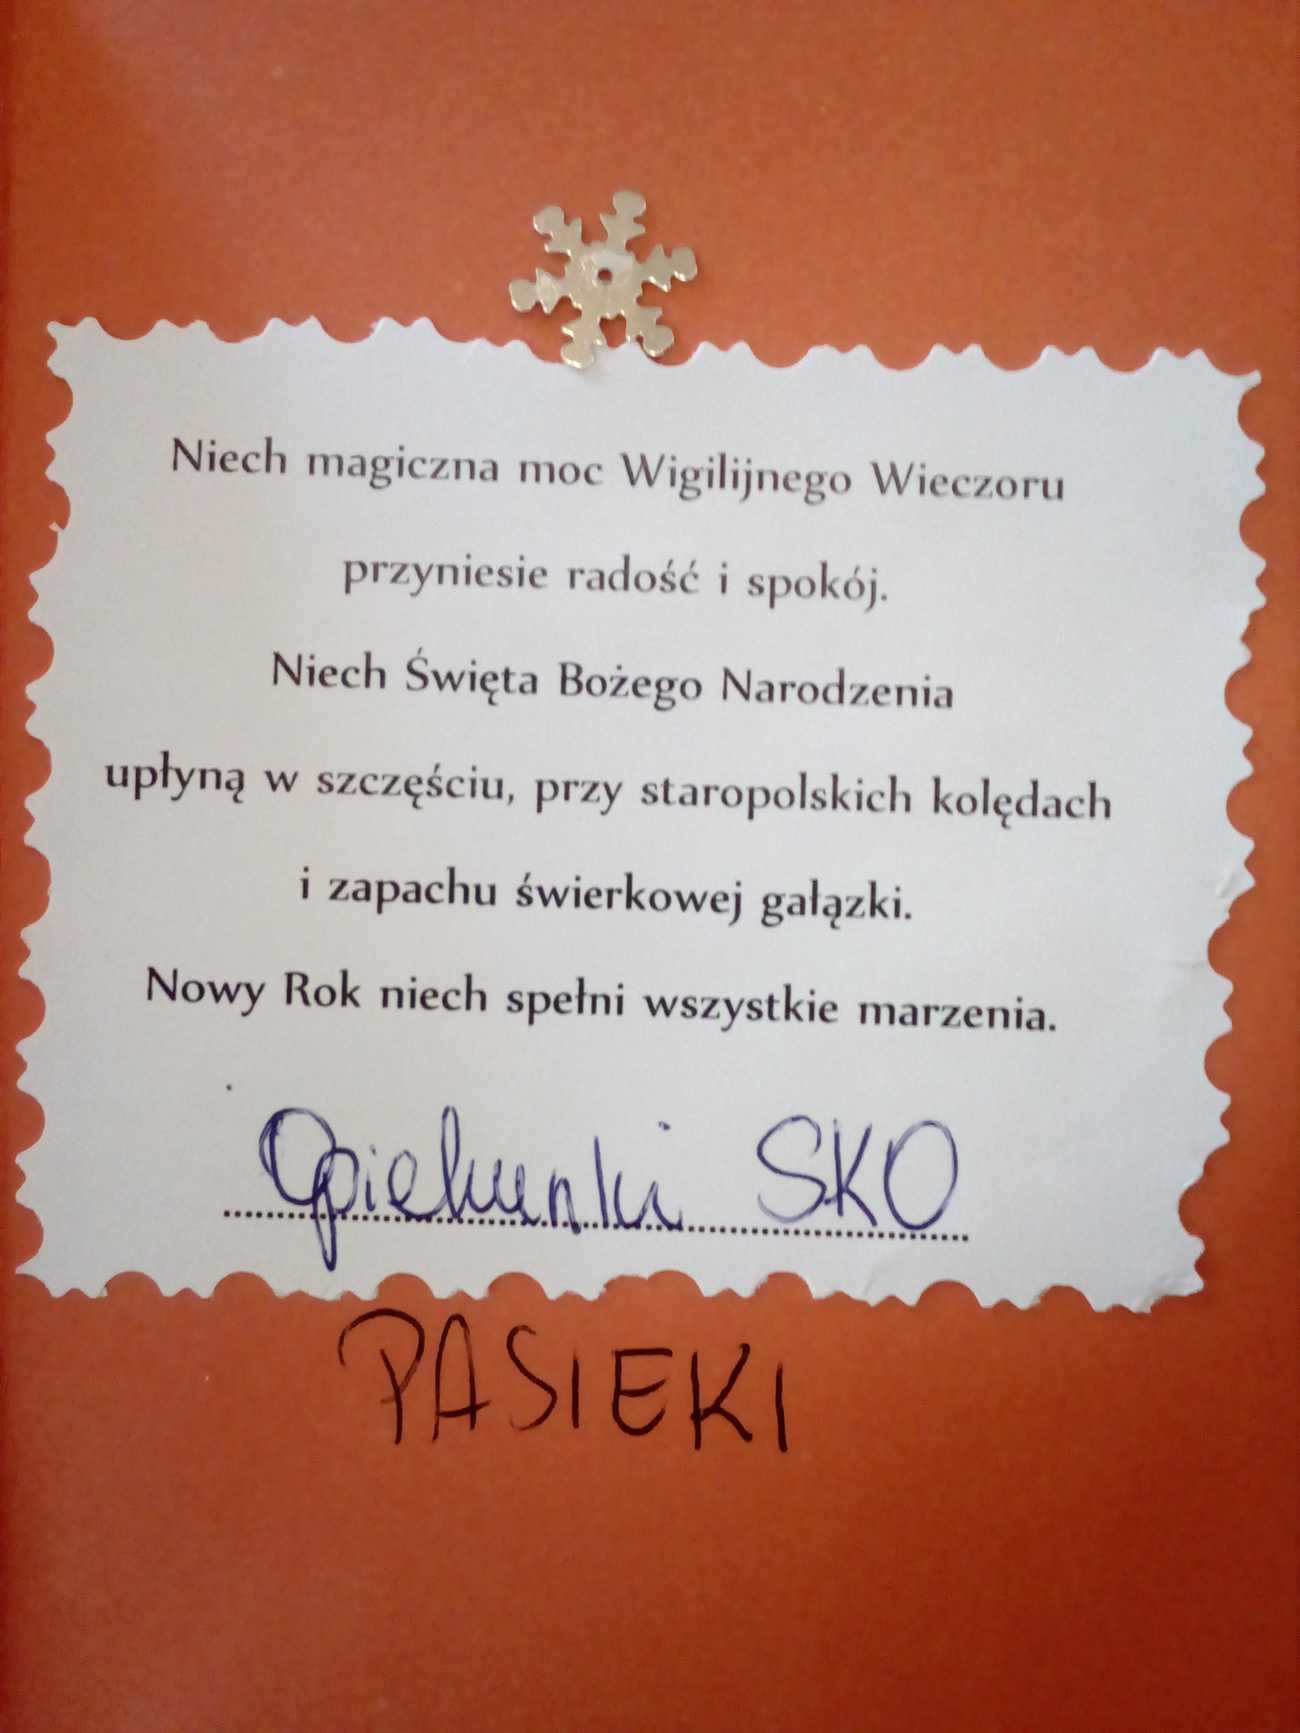 Niech magiczna moc Wigilijnego Wieczoru
przyniesie radość i spokój.
Niech Święta Bożego Narodzenia
upłyną w szczęściu, przy staropolskich kolędach
i zapachu świerkowej gałązki.
Nowy Rok niech spełni wszystkie marzenia.
Opiekunki SKO
PASIEKI